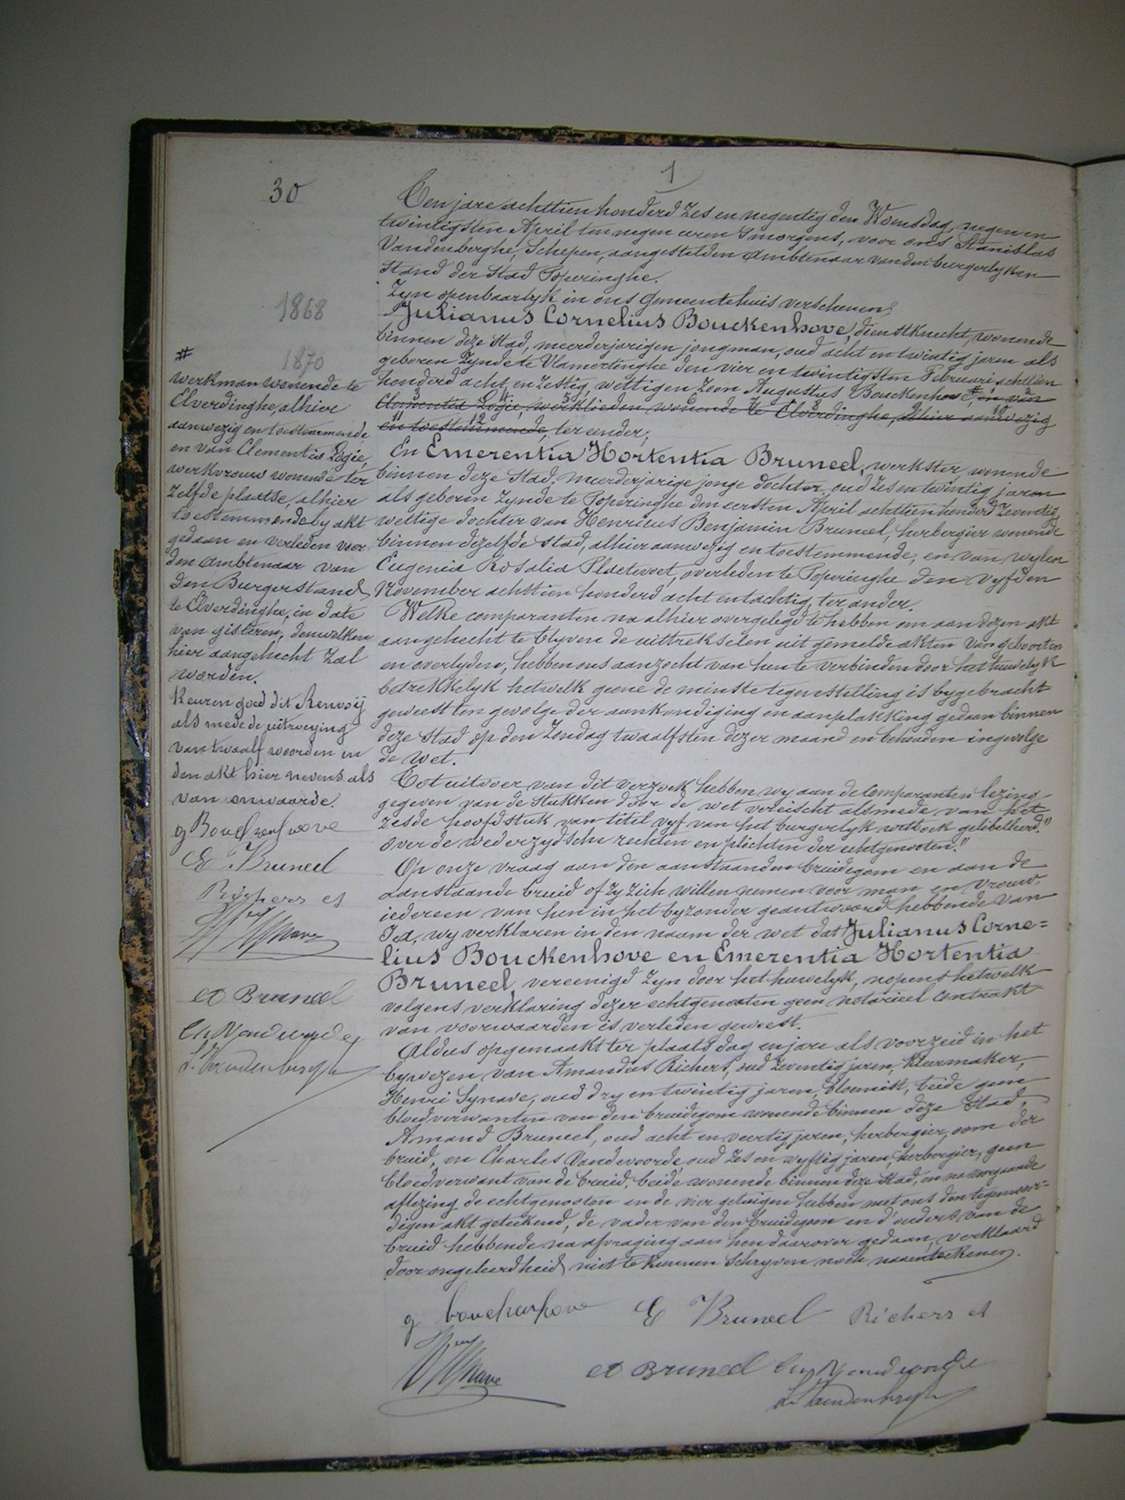 1
30
Ten jare achttien honderd zes en negentig den Woensdag, negen en
twintigsten April ten negen uren 's morgens, voor ons Stanislas
Vandenberghe, Schepen, aangestelden ambtenaar van den burgerlyken
Stand der Stad Poperinghe.
Zyn openbaarlyk in ons gemeentehuis verschenen,
Julianus Cornelius Bouckenhove, dienstknecht, wonende
binnen deze stad, meerderjarigen jongman, oud acht en twintig jaren als
geboren zynde te Vlamertinghe den vier en twintigsten Februari achttien
honderd acht en zestig, wettigen zoon Augustus Bouckenhove # en van
Clementia Logie, werklieden, wonende te Elverdinghe, alhier aanwezig
en toestemmende, ter eender;
En Emerentia Hortentia Bruneel, werkster wonende
binnen deze Stad, meerderjarige jonge dochter, oud zes en twintig jaren
als geboren zynde te Poperinghe den eersten April achttien honderd zeventig
wettige dochter van Henricus Benjamin Bruneel, herbergier wonende
binnen dezelfde stad, alhier aanwezig en toestemmende, en van wylen
Eugenia Rosalia Plaetevoet, overleden te Poperinghe den vyfden
November achttien honderd acht en tachtig, ter ander.
Welke comparanten na alhier overgelegd te hebben om aan dezen akt
aangehecht te blyven de uittrekselen uit gemelde akten van geboorten
en overlyden, hebben ons aanzocht van hen te verbinden door het huwelyk
betrekkelyk hetwelk geene de minste tegenstelling is bygebracht
geweest ten gevolge der aankondiging en aanplakking gedaan binnen
deze stad op den Zondag twaalfsten dezer maand en behouden ingevolge
de wet.
Tot uitvoer van dit verzoek hebben wy aan de comparanten lezing
gegeven van de stukken door de wet vereischt alsmede van het
zesde hoofdstuk van titel vyf van het burgerlyk wetboek gelibelleerd "
over de wederzydsche rechten en plichten der echtgenooten."
Op onze vraag aan den aanstaanden bruidegom en aan de
aanstaande bruid of zy zich willen nemen voor man en vrouw,
iedereen van hen in het byzonder geantwoord hebbende van
Ja, wy verklaren in den naam der wet dat Julianus Corne=
lius Bouckenhove en Emerentia Hortentia
Bruneel, vereenigd zyn door het huwelyk, nopens hetwelk
volgens verklaring dezer echtgenooten geen notarieel contrakt
van voorwaarden is verleden geweest.
Aldus opgemaakt ter plaats dag en jare als voorzeid in het
bywezen van Amandus Richers, oud zeventig jaren, kleermaker,
Henri Synave, oud dry en twintig jaren, klomist, beide geen
bloedverwanten van den bruidegom wonende binnen deze Stad,
Amand Bruneel, oud acht en veertig jaren, herbergier, oom der
bruid, en Charles Vandevoorde oud zes en vyftig jaren, herbergier, geen
bloedverwant van de bruid, beide wonende binnen deze Stad, en na voorgaande
aflezing de echtgenooten en de vier getuigen hebben met ons den tegenwoor-
digen akt geteekend, de vader van den bruidegom en d'ouders van de
bruid hebbende na afvraging aan hen daarover gedaan, verklaard
door ongeleerdheid niet te kunnen schryven noch naamteekenen.
1868
1870
#
werkman wonende te
Elverdinghe, alhier
aanwezig en toestemmende
en van Clementia Logie,
werkvrouw wonende ter
zelfde plaatse, alhier
toestemmende by akt
gedaan en verleden voor
den ambtenaar van
den Burgerstand
te Elverdinghe, in date
van gisteren, denwelken
hier aangehecht zal
worden.
Keuren goed dit Renvooij
als mede de uitveeging
van twaalf woorden in
den akt hier nevens als
van onwaarde.
E Bruneel
Richers et
Synave
Bruneel
Ch Vandevoorde
S. Vandenberghe
E Bruneel Richers et
Synave Bruneel Ch Vandevoorde
S. Vandenberghe